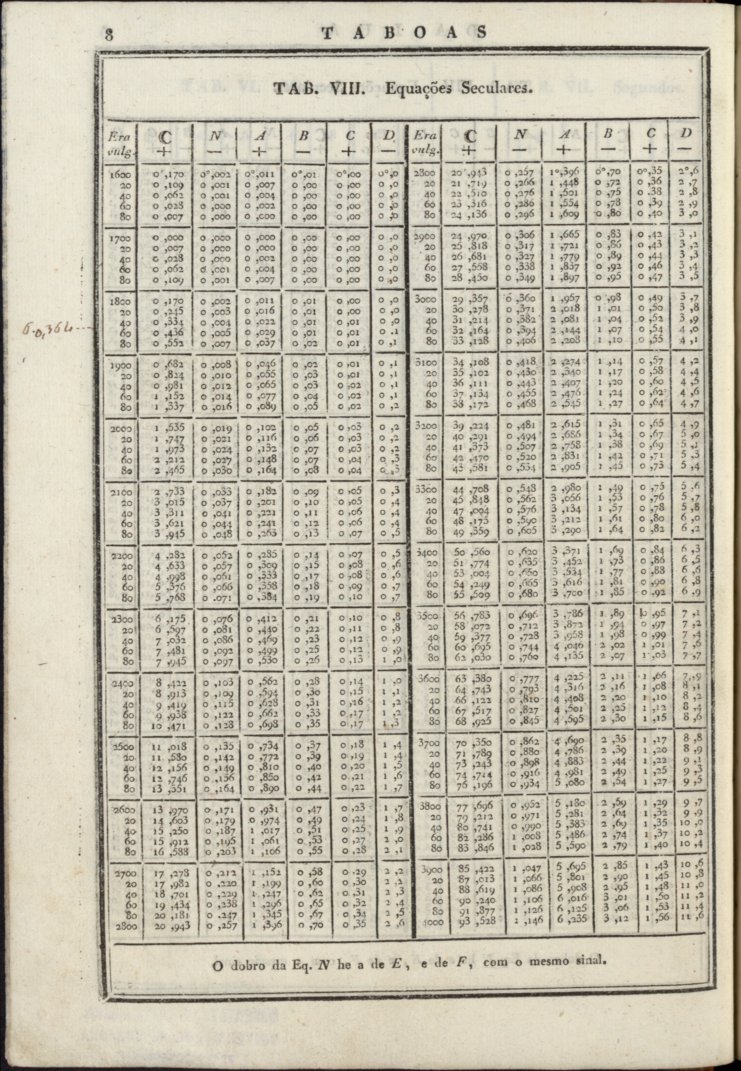 8 TABOAS
TAB. VIII. Equações Seculares.
Era vulg. ☾ + N − A + B − C + D − Era vulg. ☾ + N − A + B − C + D −
1600 0°,170 0°,002 0°,011 0°,01 0°,00 0°,0 2800 20°,943 0°,257 1°,396 0°,70 0°,35 2°,6
20 0,109 0,001 0,007 0,00 0,00 0,0 20 21,719 0,266 1,448 0,72 0,36 2,7
40 0,062 0,001 0,004 0,00 0,00 0,0 40 22,510 0,276 1,501 0,75 0,38 2,8
60 0,028 0,000 0,002 0,00 0,00 0,0 60 23,316 0,286 1,554 0,78 0,39 2,9
80 0,007 0,000 0,000 0,00 0,00 0,0 80 24,136 0,296 1,609 0,80 0,40 3,0
1700 0,000 0,000 0,000 0,00 0,00 0,0 2900 24,970 0,306 1,665 0,83 0,42 3,1
20 0,007 0,000 0,000 0,00 0,00 0,0 20 25,818 0,317 1,721 0,86 0,43 3,2
40 0,028 0,000 0,002 0,00 0,00 0,0 40 26,681 0,327 1,779 0,89 0,44 3,3
60 0,062 0,001 0,004 0,00 0,00 0,0 60 27,558 0,338 1,837 0,92 0,46 3,4
80 0,109 0,001 0,007 0,00 0,00 0,0 80 28,450 0,349 1,897 0,95 0,47 3,5
1800 0,170 0,002 0,011 0,01 0,00 0,0 3000 29,357 0,360 1,957 0,98 0,49 3,7
20 0,245 0,003 0,016 0,01 0,00 0,0 20 30,278 0,371 2,018 1,01 0,50 3,8
40 0,334 0,004 0,022 0,01 0,01 0,0 40 31,214 0,382 2,081 1,04 0,52 3,9
60 0,436 0,005 0,029 0,01 0,01 0,1 60 32,164 0,394 2,144 1,07 0,54 4,0
80 0,552 0,007 0,037 0,02 0,01 0,1 80 33,128 0,406 2,208 1,10 0,55 4,1
1900 0,682 0,008 0,046 0,02 0,01 0,1 3100 34,108 0,418 2,274 1,14 0,57 4,2
20 0,824 0,010 0,055 0,03 0,01 0,1 20 35,102 0,430 2,340 1,17 0,58 4,4
40 0,981 0,012 0,065 0,03 0,02 0,1 40 36,111 0,443 2,407 1,20 0,60 4,5
60 1,152 0,014 0,077 0,04 0,02 0,1 60 37,134 0,455 2,476 1,24 0,62 4,6
80 1,337 0,016 0,089 0,05 0,02 0,2 80 38,172 0,468 2,545 1,27 0,64 4,7
2000 1,535 0,019 0,102 0,05 0,03 0,2 3200 39,224 0,481 2,615 1,31 0,65 4,9
20 1,747 0,021 0,116 0,06 0,03 0,2 20 40,291 0,494 2,686 1,34 0,67 5,0
40 1,973 0,024 0,132 0,07 0,03 0,2 40 41,373 0,507 2,758 1,38 0,69 5,1
60 2,212 0,027 0,148 0,07 0,04 0,3 60 42,470 0,520 2,831 1,42 0,71 5,3
80 2,465 0,030 0,164 0,08 0,04 0,3 80 43,581 0,534 2,905 1,45 0,73 5,4
2100 2,733 0,033 0,182 0,09 0,05 0,3 3300 44,708 0,548 2,980 1,49 0,75 5,6
20 3,015 0,037 0,201 0,10 0,05 0,4 20 45,848 0,562 3,056 1,53 0,76 5,7
40 3,311 0,041 0,221 0,11 0,06 0,4 40 47,004 0,576 3,134 1,57 0,78 5,8
60 3,621 0,044 0,241 0,12 0,06 0,4 60 48,175 0,590 3,212 1,61 0,80 6,0
80 3,945 0,048 0,263 0,13 0,07 0,5 80 49,359 0,605 3,290 1,64 0,82 6,2
2200 4,282 0,052 0,285 0,14 0,07 0,5 3400 50,560 0,620 3,371 1,69 0,84 6,3
20 4,633 0,057 0,309 0,15 0,08 0,6 20 51,774 0,635 3,452 1,73 0,86 6,5
40 4,998 0,061 0,333 0,17 0,08 0,6 40 53,004 0,650 3,534 1,77 0,88 6,6
60 5,376 0,066 0,358 0,18 0,09 0,7 60 54,249 0,665 3,616 1,81 0,90 6,8
80 5,768 0,071 0,384 0,19 0,10 0,7 80 55,509 0,680 3,700 1,85 0,92 6,9
2300 6,175 0,076 0,412 0,21 0,10 0,8 3500 56,783 0,696 3,786 1,89 0,95 7,1
20 6,597 0,081 0,440 0,22 0,11 0,8 20 58,072 0,712 3,872 1,94 0,97 7,2
40 7,032 0,086 0,469 0,23 0,12 0,9 40 59,377 0,728 3,958 1,98 0,99 7,4
60 7,481 0,092 0,499 0,25 0,12 0,9 60 60,695 0,744 4,046 2,02 1,01 7,6
80 7,945 0,097 0,530 0,26 0,13 1,0 80 62,030 0,760 4,135 2,07 1,03 7,7
2400 8,422 0,103 0,562 0,28 0,14 1,0 3600 63,380 0,777 4,225 2,11 1,06 7,9
20 8,913 0,109 0,594 0,30 0,15 1,1 20 64,743 0,793 4,316 2,16 1,08 8,1
40 9,419 0,115 0,628 0,31 0,16 1,2 40 66,122 0,810 4,408 2,20 1,10 8,2
60 9,938 0,122 0,662 0,33 0,17 1,2 60 67,517 0,827 4,501 2,25 1,12 8,4
80 10,471 0,128 0,698 0,35 0,17 1,3 80 68,925 0,845 4,595 2,30 1,15 8,6
2500 11,018 0,135 0,734 0,37 0,18 1,4 3700 70,350 0,862 4,690 2,35 1,17 8,8
20 11,580 0,142 0,772 0,39 0,19 1,4 20 71,789 0,880 4,786 2,39 1,20 8,9
40 12,156 0,149 0,810 0,40 0,20 1,5 40 73,243 0,898 4,883 2,44 1,22 9,1
60 12,746 0,156 0,850 0,42 0,21 1,6 60 74,714 0,916 4,981 2,49 1,25 9,3
80 13,351 0,164 0,890 0,44 0,22 1,7 80 76,196 0,934 5,080 2,54 1,27 9,5
2600 13,970 0,171 0,931 0,47 0,23 1,7 3800 77,696 0,952 5,180 2,59 1,29 9,7
20 14,603 0,179 0,974 0,49 0,24 1,8 20 79,212 0,971 5,281 2,64 1,32 9,9
40 15,250 0,187 1,017 0,51 0,25 1,9 40 80,741 0,990 5,383 2,69 1,35 10,0
60 15,912 0,195 1,061 0,53 0,27 2,0 60 82,286 1,008 5,486 2,74 1,37 10,2
80 16,588 0,203 1,106 0,55 0,28 2,1 80 83,846 1,028 5,590 2,79 1,40 10,4
2700 17,278 0,212 1,152 0,58 0,29 2,2 3900 85,422 1,047 5,695 2,85 1,43 10,6
20 17,982 0,220 1,199 0,60 0,30 2,2 20 87,013 1,066 5,801 2,90 1,45 10,8
40 18,701 0,229 1,247 0,62 0,31 2,3 40 88,619 1,086 5,908 2,95 1,48 11,0
60 19,434 0,238 1,296 0,65 0,32 2,4 60 90,240 1,106 6,016 3,01 1,50 11,2
80 20,181 0,247 1,345 0,67 0,34 2,5 80 91,877 1,126 6,125 3,06 1,53 11,4
2800 20,943 0,257 1,396 0,70 0,35 2,6 4000 93,528 1,146 6,235 3,12 1,56 11,6
O dobro da Eq. N he a de E, e de F, com o mesmo sinal.